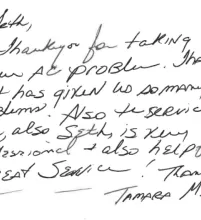 Seth,
Thankyou for taking
our AC problem. Tha
t has given us so many
blems. Also the servic
, also Seth, is very
fessional & also helpf
eat Service! Than
Tamara M.